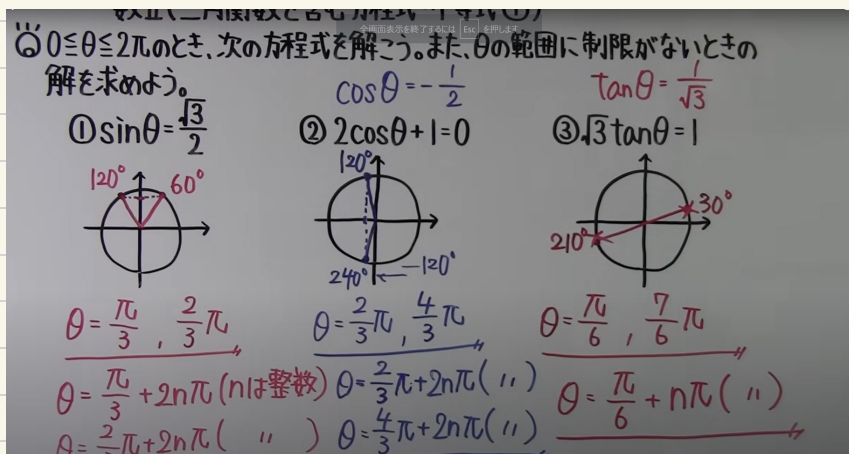 数Ⅱ(三角関数を含む方程式・不等式①)
全画面表示を終了するには Esc を押します
0≦θ≦2πのとき、次の方程式を解こう。また、θの範囲に制限がないときの
解を求めよう。
cosθ=-1/2
tanθ=1/√3
①sinθ=√3/2
②2cosθ+1=0
③√3tanθ=1
120° 60°
120°
240° -120°
30°
210°
θ=π/3, 2/3π
θ=2/3π, 4/3π
θ=π/6, 7/6π
θ=π/3+2nπ(nは整数)
θ=2/3π+2nπ( 〃 )
θ=2/3π+2nπ(〃)
θ=4/3π+2nπ(〃)
θ=π/6+nπ(〃)